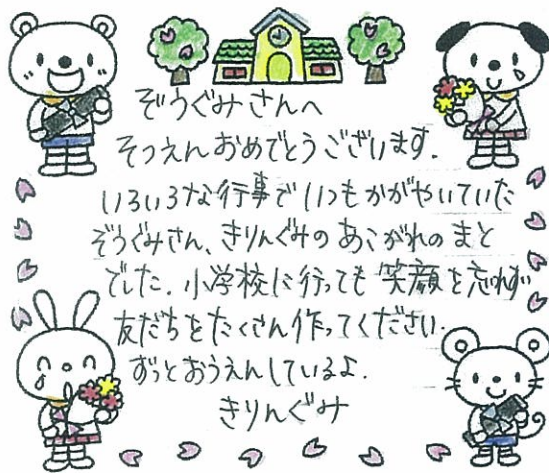 ぞうぐみさんへ
そつえんおめでとうございます.
いろいろな行事でいつもかがやいていた
ぞうぐみさん、きりんぐみのあこがれのまと
でした. 小学校に行っても笑顔を忘れず
友だちをたくさん作ってください.
ずっとおうえんしているよ.
きりんぐみ